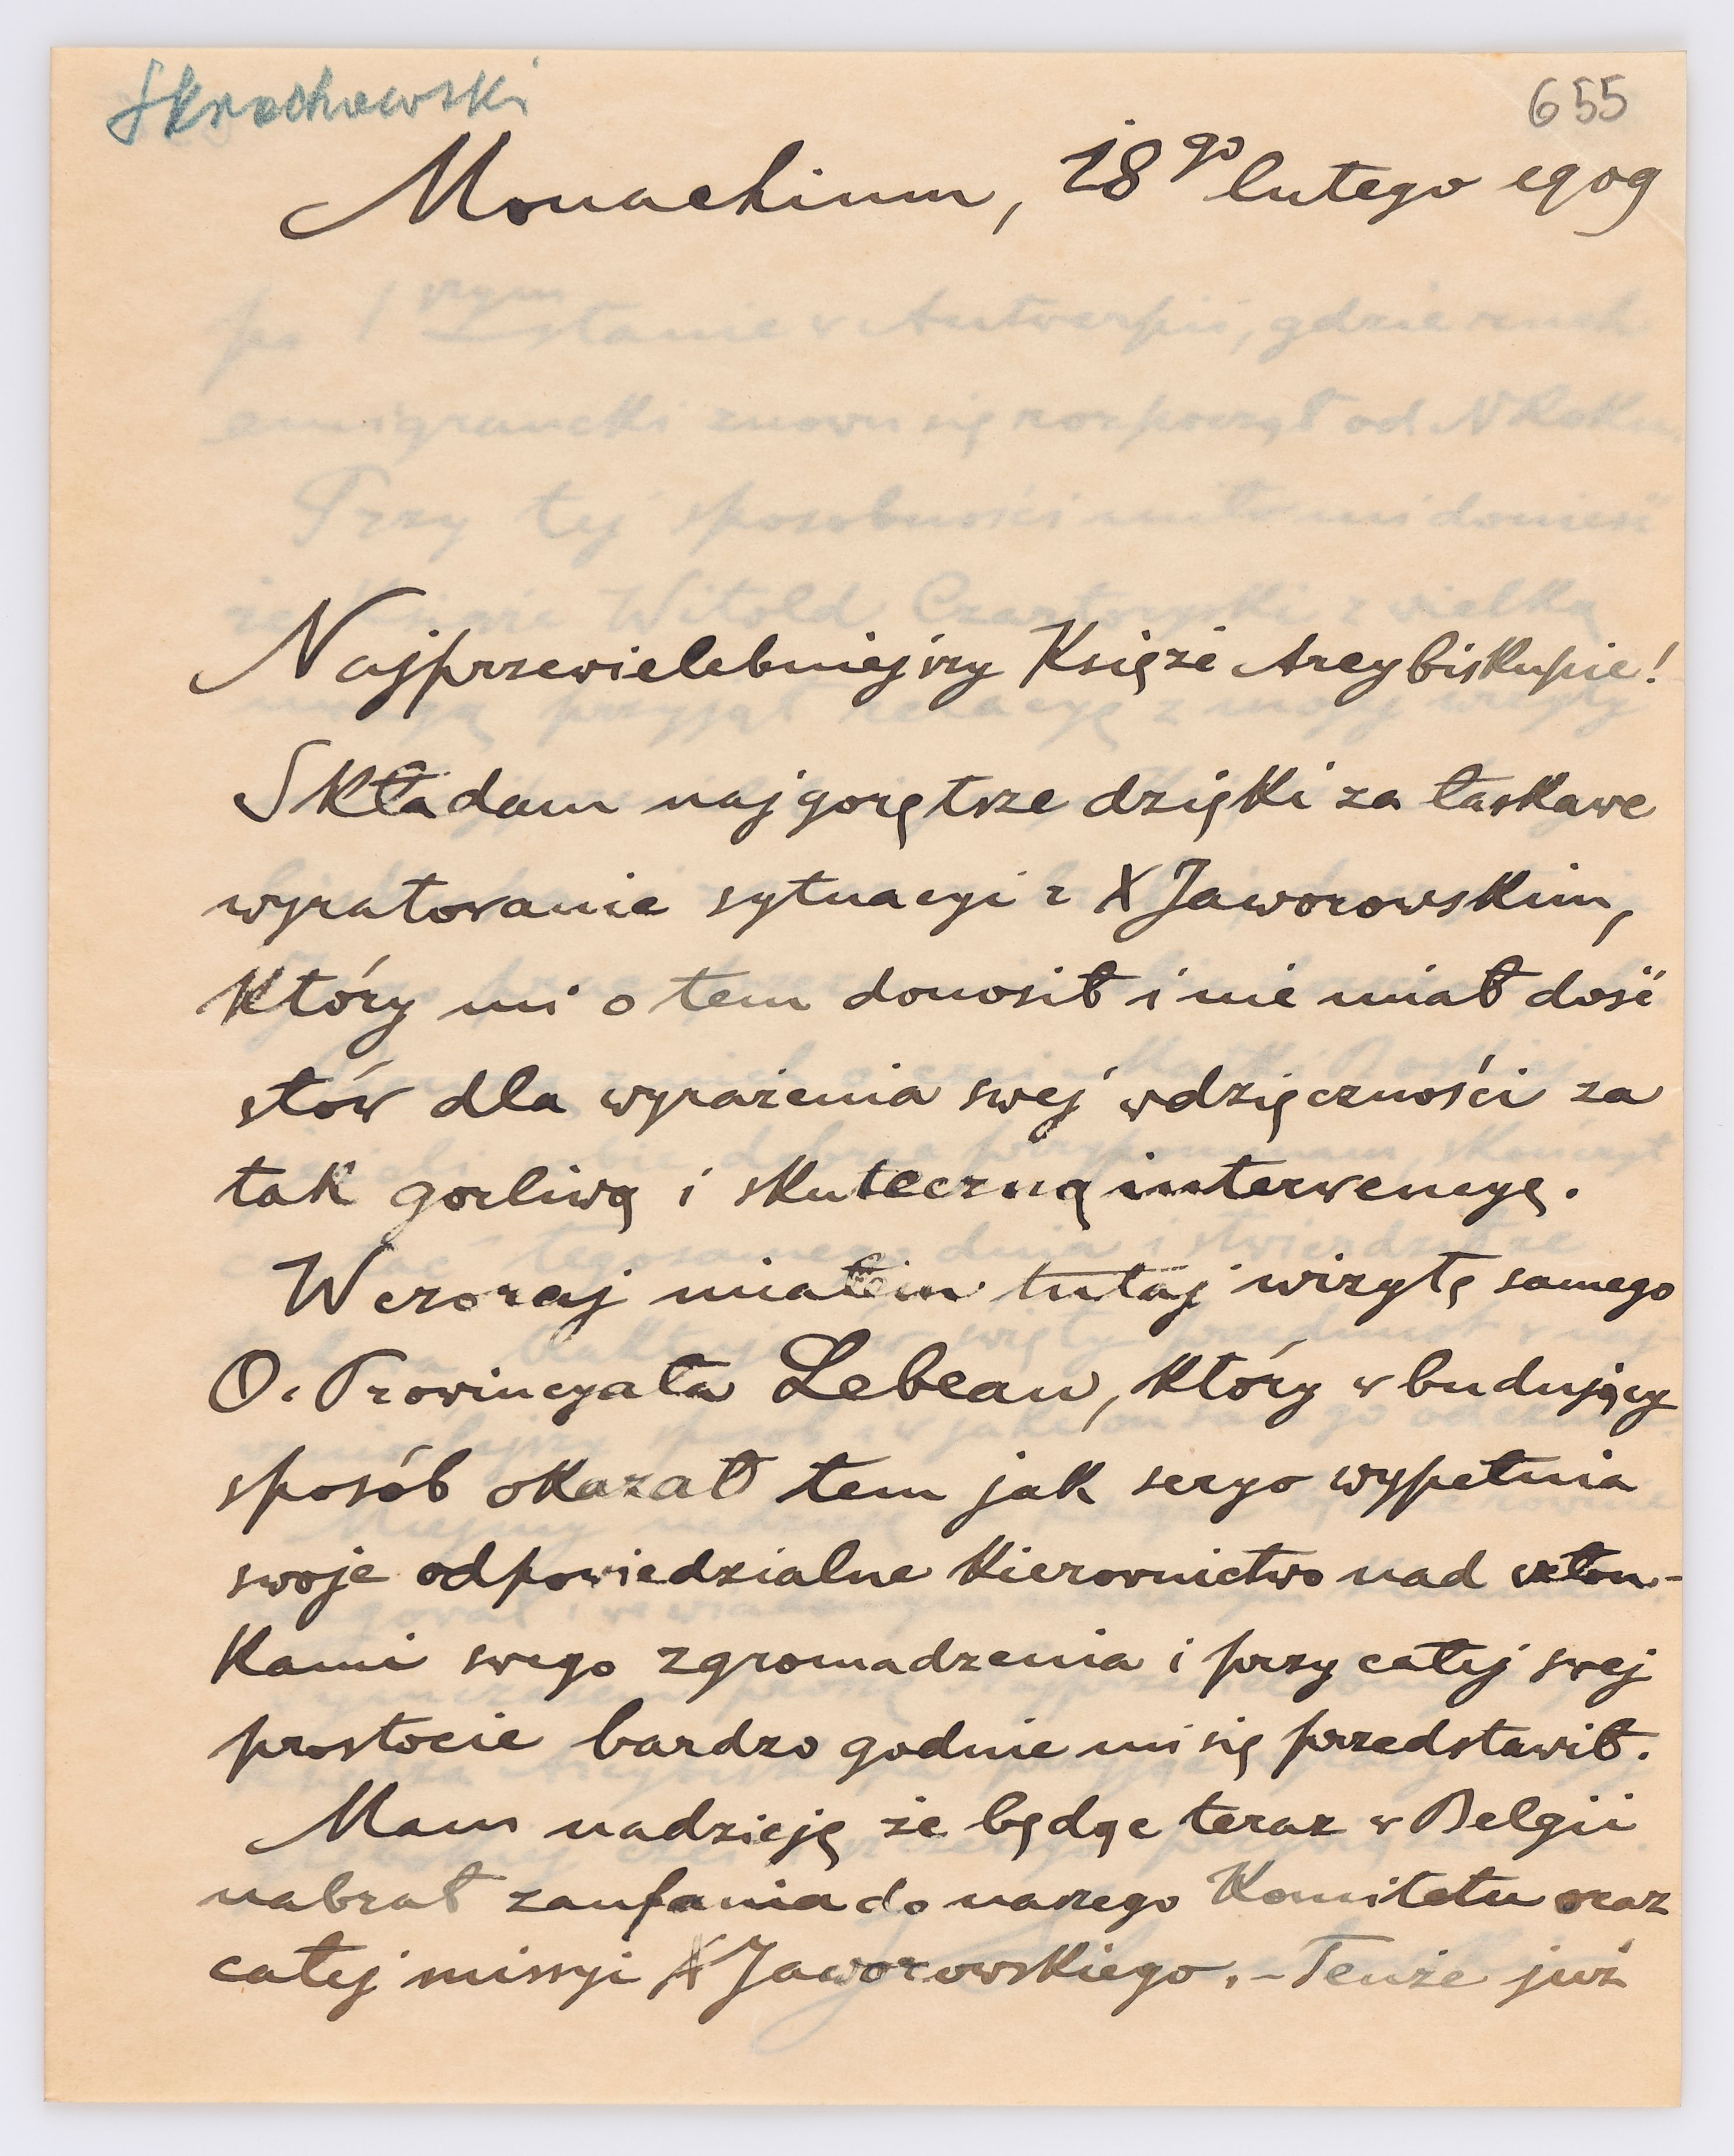 Skrochowski
655
Monachium, 18go lutego 1909
Najprzewielebniejszy Księże Arcybiskupie!
Składam najgorętsze dzięki za łaskawe
wyratowanie sytuacyi z X Jaworowskim,
który mi o tem donosił i nie miał dość
słów dla wyrażenia swej wdzięczności za
tak gorliwą i skuteczną interwencyę.
Wczoraj miałem tutaj wizytę samego
O. Prowincyała Lebeau, który w budujący
sposób okazał tem jak seryo wypełnia
swoje odpowiedzialne kierownictwo nad człon-
kami swego zgromadzenia i przy całej swej
prostocie bardzo godnie mi się przedstawił.
Mam nadzieję że będąc teraz w Belgii
nabrał zaufania do naszego Komitetu oraz
całej missyi X Jaworowskiego. - Tenże już